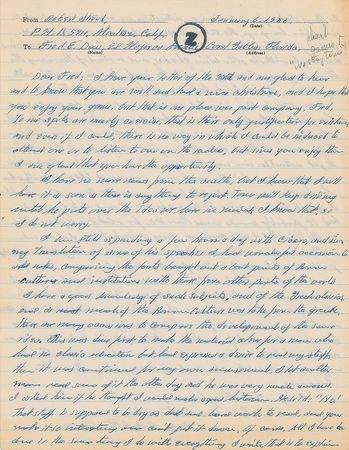 From Robert Stroud, January 6, 1955.
(Name) (Date)
P.M.B. 594, Alcatraz, Calif.
2
To Fred E. Daw, 28 Coral Gables, Florida,
(Name) (Address)
Dear Fred; I have your letter of the 30th and am glad to hear
and to know that you are well and had a nice christmas, and I hope that
you enjoy your game, but that is one place we part company, Fred.
To me sports are merely exercise, that is their only justification for existing,
and even if I could, there is no way in which I could be induced to
attend one or to listen to one on the radio, but since you enjoy them
I am glad that you have the opportunity.
I have no more news from the south, but I know that I will
have it as soon as there is anything to report. Tom will keep driving
until he puts over the idea or has in and I know that, so
I do not worry.
I am still spending a few hours a day with Cicero, and in
my translation of some of his speeches I had wonderful occasion to
add notes, comparing the facts brought out about points of Roman
culture and institutions with those from other parts of the world.
I have a good knowledge of such subjects, and of the Greek classics
and as most of the Roman Culture was taken from the greek,
there are many occasions to compare the development of the same
idea. This was done first to make the material clear for a man who
had no classic education but had expressed a desire to read my stuff,
then it was continued for my own amusement. I let another
man read some of it the other day and he was very much amused.
I asked him if he thought I would make a good historian. He said: "No!
That stuff is supposed to be dry as dust and hard work to read and you
make it so interesting one can't put it down. Of course, All I have to
done is the same thing I do with everything I write, that is to explain